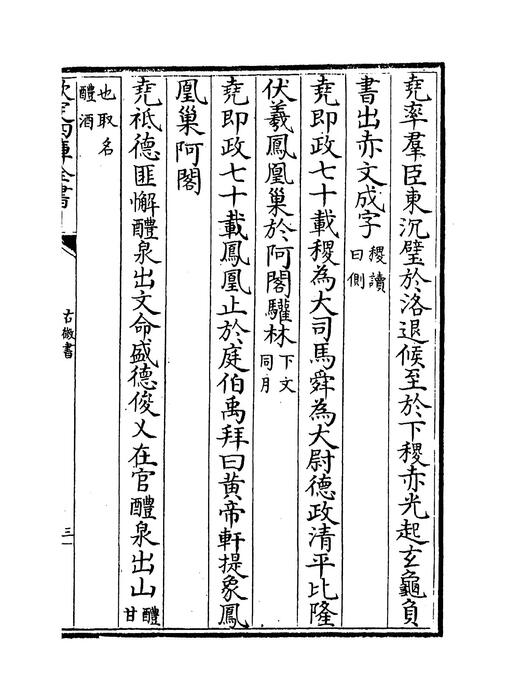 堯率羣臣東沉璧於洛退候至於下稷赤光起玄龜負
書出赤文成字稷讀曰側
堯即政七十載稷為大司馬舜為大尉德政清平比隆
伏羲鳳凰巢於阿閣驩林下文同月
堯即政七十載鳳凰止於庭伯禹拜曰黃帝軒提象鳳
凰巢阿閣
堯祗德匪懈醴泉出文命盛德俊乂在官醴泉出山醴甘
也取名醴酒
欽定四庫全書
古微書
三